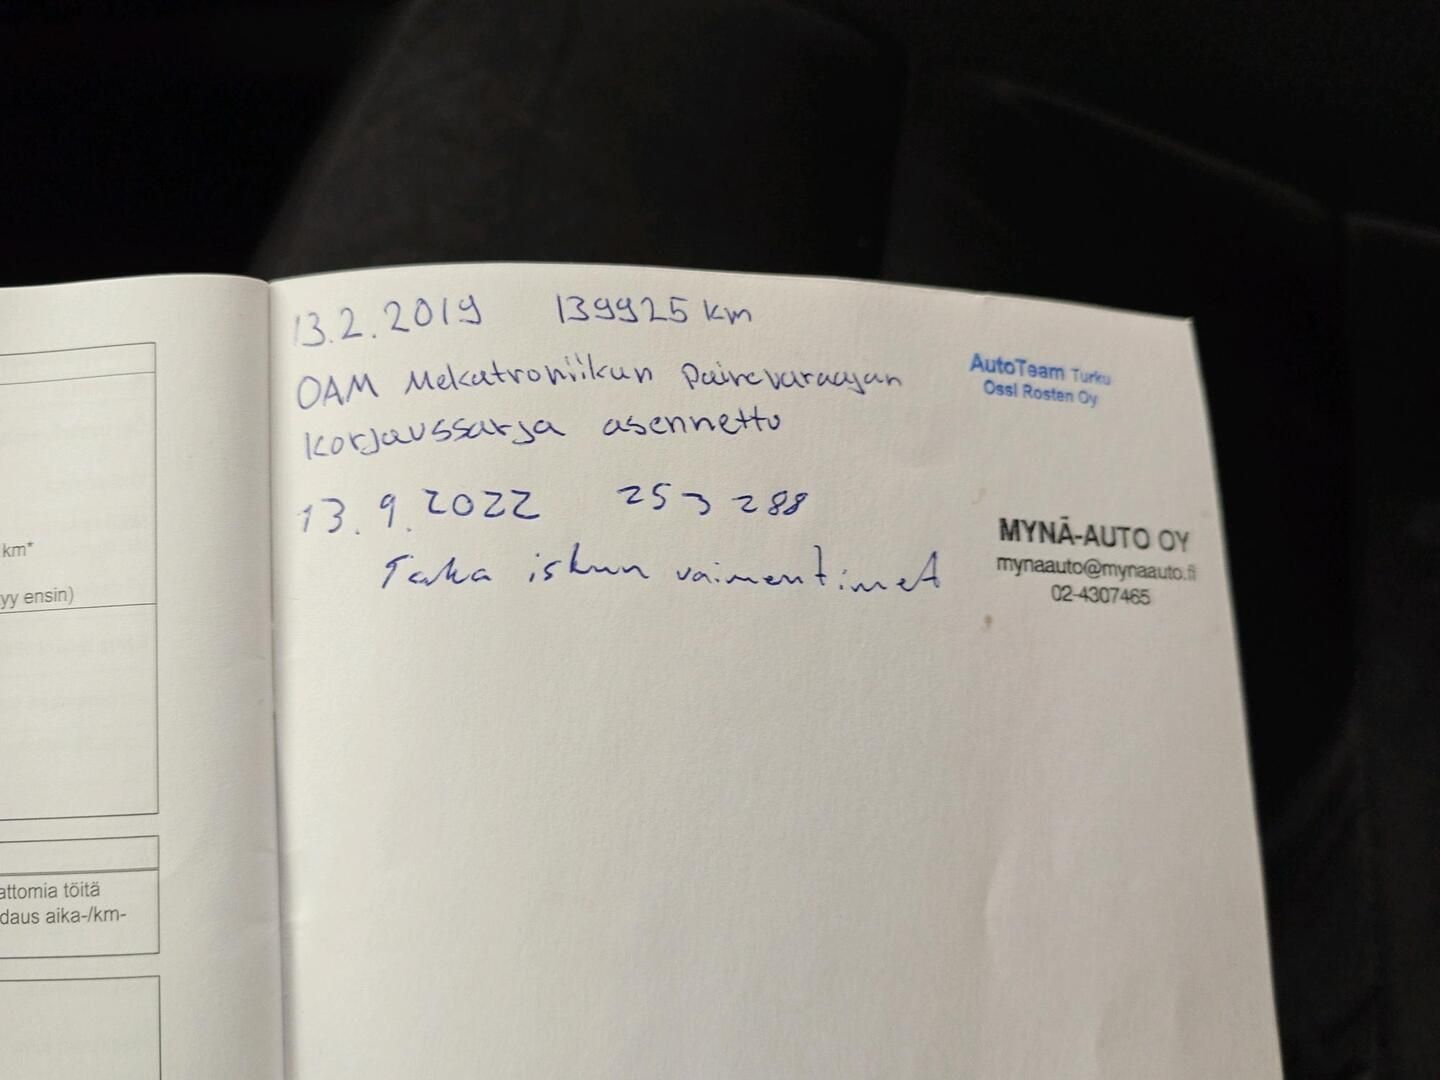 13.2.2019 139925 km
OAM Mekatroniikan Painevaraajan
korjaussarja asennettu
AutoTeam Turku
Ossi Rosten Oy
13.9.2022 253 288
Taka iskun vaimentimet
MYNÄ-AUTO OY
mynaauto@mynaauto.fi
02-4307465
km*
yy ensin)
attomia töitä
daus aika-/km-